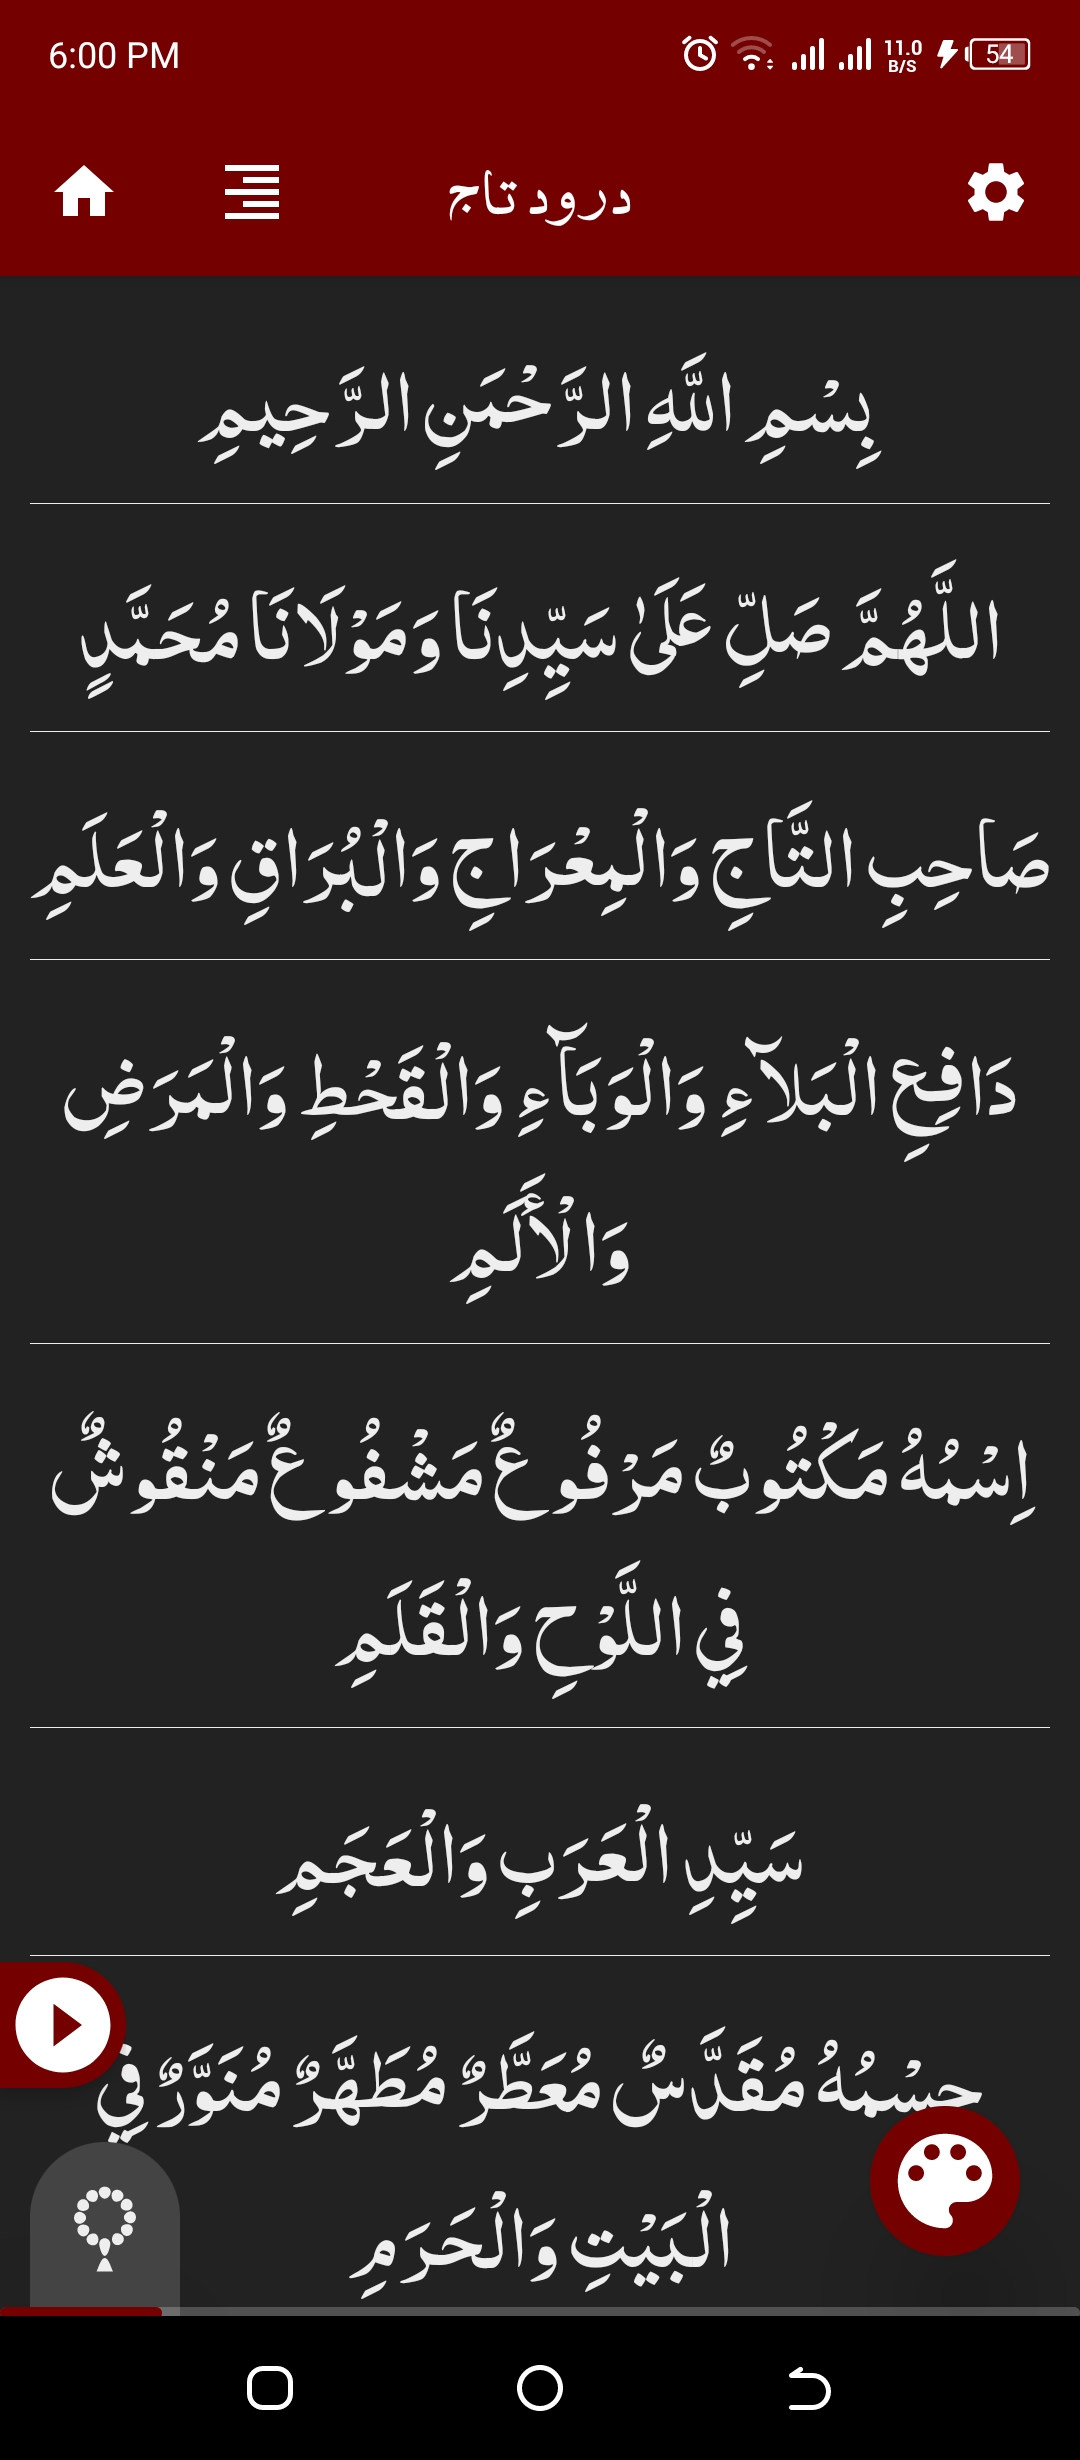 6:00 PM
11.0
B/S
54
درود تاج
بِسْمِ اللَّهِ الرَّحْمَنِ الرَّحِيمِ
اللَّهُمَّ صَلِّ عَلَىٰ سَيِّدِنَا وَمَوْلَانَا مُحَمَّدٍ
صَاحِبِ التَّاجِ وَالْمِعْرَاجِ وَالْبُرَاقِ وَالْعَلَمِ
دَافِعِ الْبَلَآءِ وَالْوَبَآءِ وَالْقَحْطِ وَالْمَرَضِ
وَالْأَلَمِ
اِسْمُهُ مَكْتُوبٌ مَرْفُوعٌ مَشْفُوعٌ مَنْقُوشٌ
فِي اللَّوْحِ وَالْقَلَمِ
سَيِّدِ الْعَرَبِ وَالْعَجَمِ
جِسْمُهُ مُقَدَّسٌ مُعَطَّرٌ مُطَهَّرٌ مُنَوَّرٌ فِي
الْبَيْتِ وَالْحَرَمِ